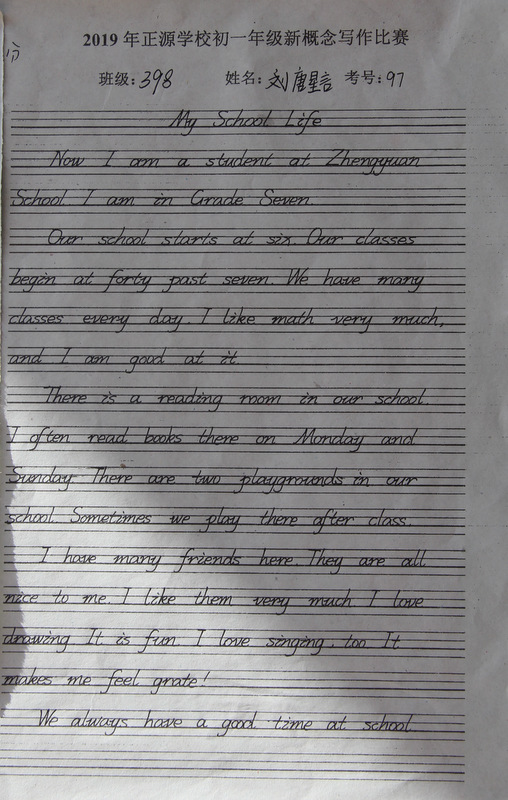 2019 年正源学校初一年级新概念写作比赛
班级: 398 姓名: 刘唐星言 考号: 97
My School Life
Now I am a student at Zhengyuan
School. I am in Grade Seven.
Our school starts at six. Our classes
begin at forty past seven. We have many
classes every day. I like math very much,
and I am good at it.
There is a reading room in our school.
I often read books there on Monday and
Sunday. There are two playgrounds in our
school. Sometimes we play there after class.
I have many friends here. They are all
nice to me. I like them very much. I love
drawing. It is fun. I love singing, too. It
makes me feel grate!
We always have a good time at school.